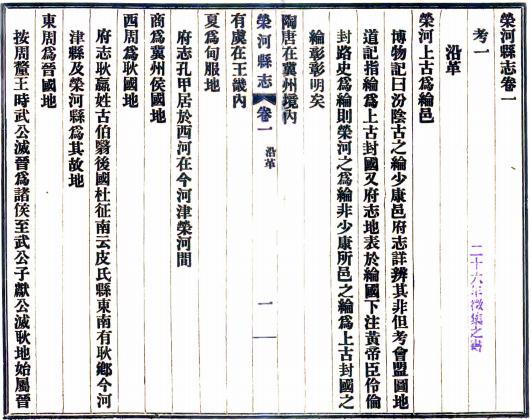 榮河縣志卷一
考一
二十六年徵集之書
沿革
榮河上古為綸邑
博物記曰汾陰古之綸少康邑府志詳辨其非但考會盟圖地
道記指綸為上古封國又府志地表於綸國下注黃帝臣伶倫
封路史為綸則榮河之為綸非少康所邑之綸為上古封國之
綸彰彰明矣
陶唐在冀州境內
榮河縣志
卷一
沿革
一
有虞在王畿內
夏為甸服地
府志孔甲居於西河在今河津榮河間
商為冀州侯國地
西周為耿國地
府志耿嬴姓古伯翳後國杜征南云皮氏縣東南有耿鄉今河
津縣及榮河縣為其故地
東周為晉國地
按周釐王時武公滅晉為諸侯至武公子獻公滅耿地始屬晉